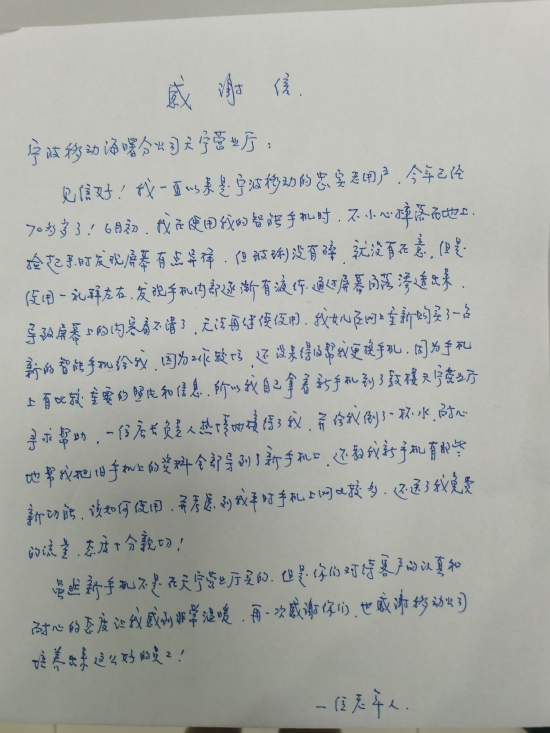 感谢信.
宁波移动海曙分公司天宁营业厅：
见信好！我一直以来是宁波移动的忠实老用户，今年已经
70多岁了！6月初，我在使用我的智能手机时，不小心摔落在地上.
捡起来时发现屏幕有点异样，但玻璃没有碎，就没有在意，但是
使用一礼拜左右，发现手机内部逐渐有液体，通过屏幕角落渗透出来，
导致屏幕上的内容看不清了，无法再继续使用，我女儿在网上重新购买了一台
新的智能手机给我，因为工作较忙，还没来得及帮我更换手机，因为手机
上有比较重要的照片和信息，所以我自己拿着新手机到了鼓楼天宁营业厅
寻求帮助，一位店长负责人热情地接待了我，并给我倒了一杯水，耐心
地帮我把旧手机上的资料全部导到了新手机上，还教我新手机有那些
新功能，该如何使用，并考虑到我平时手机上网比较多，还送了我免费
的流量，态度十分亲切！
虽然新手机不是在天宁营业厅买的，但是你们对待客户的认真和
耐心的态度让我感到非常温暖，再一次感谢你们，也感谢移动公司
培养出来这么好的员工！
一位老年人.